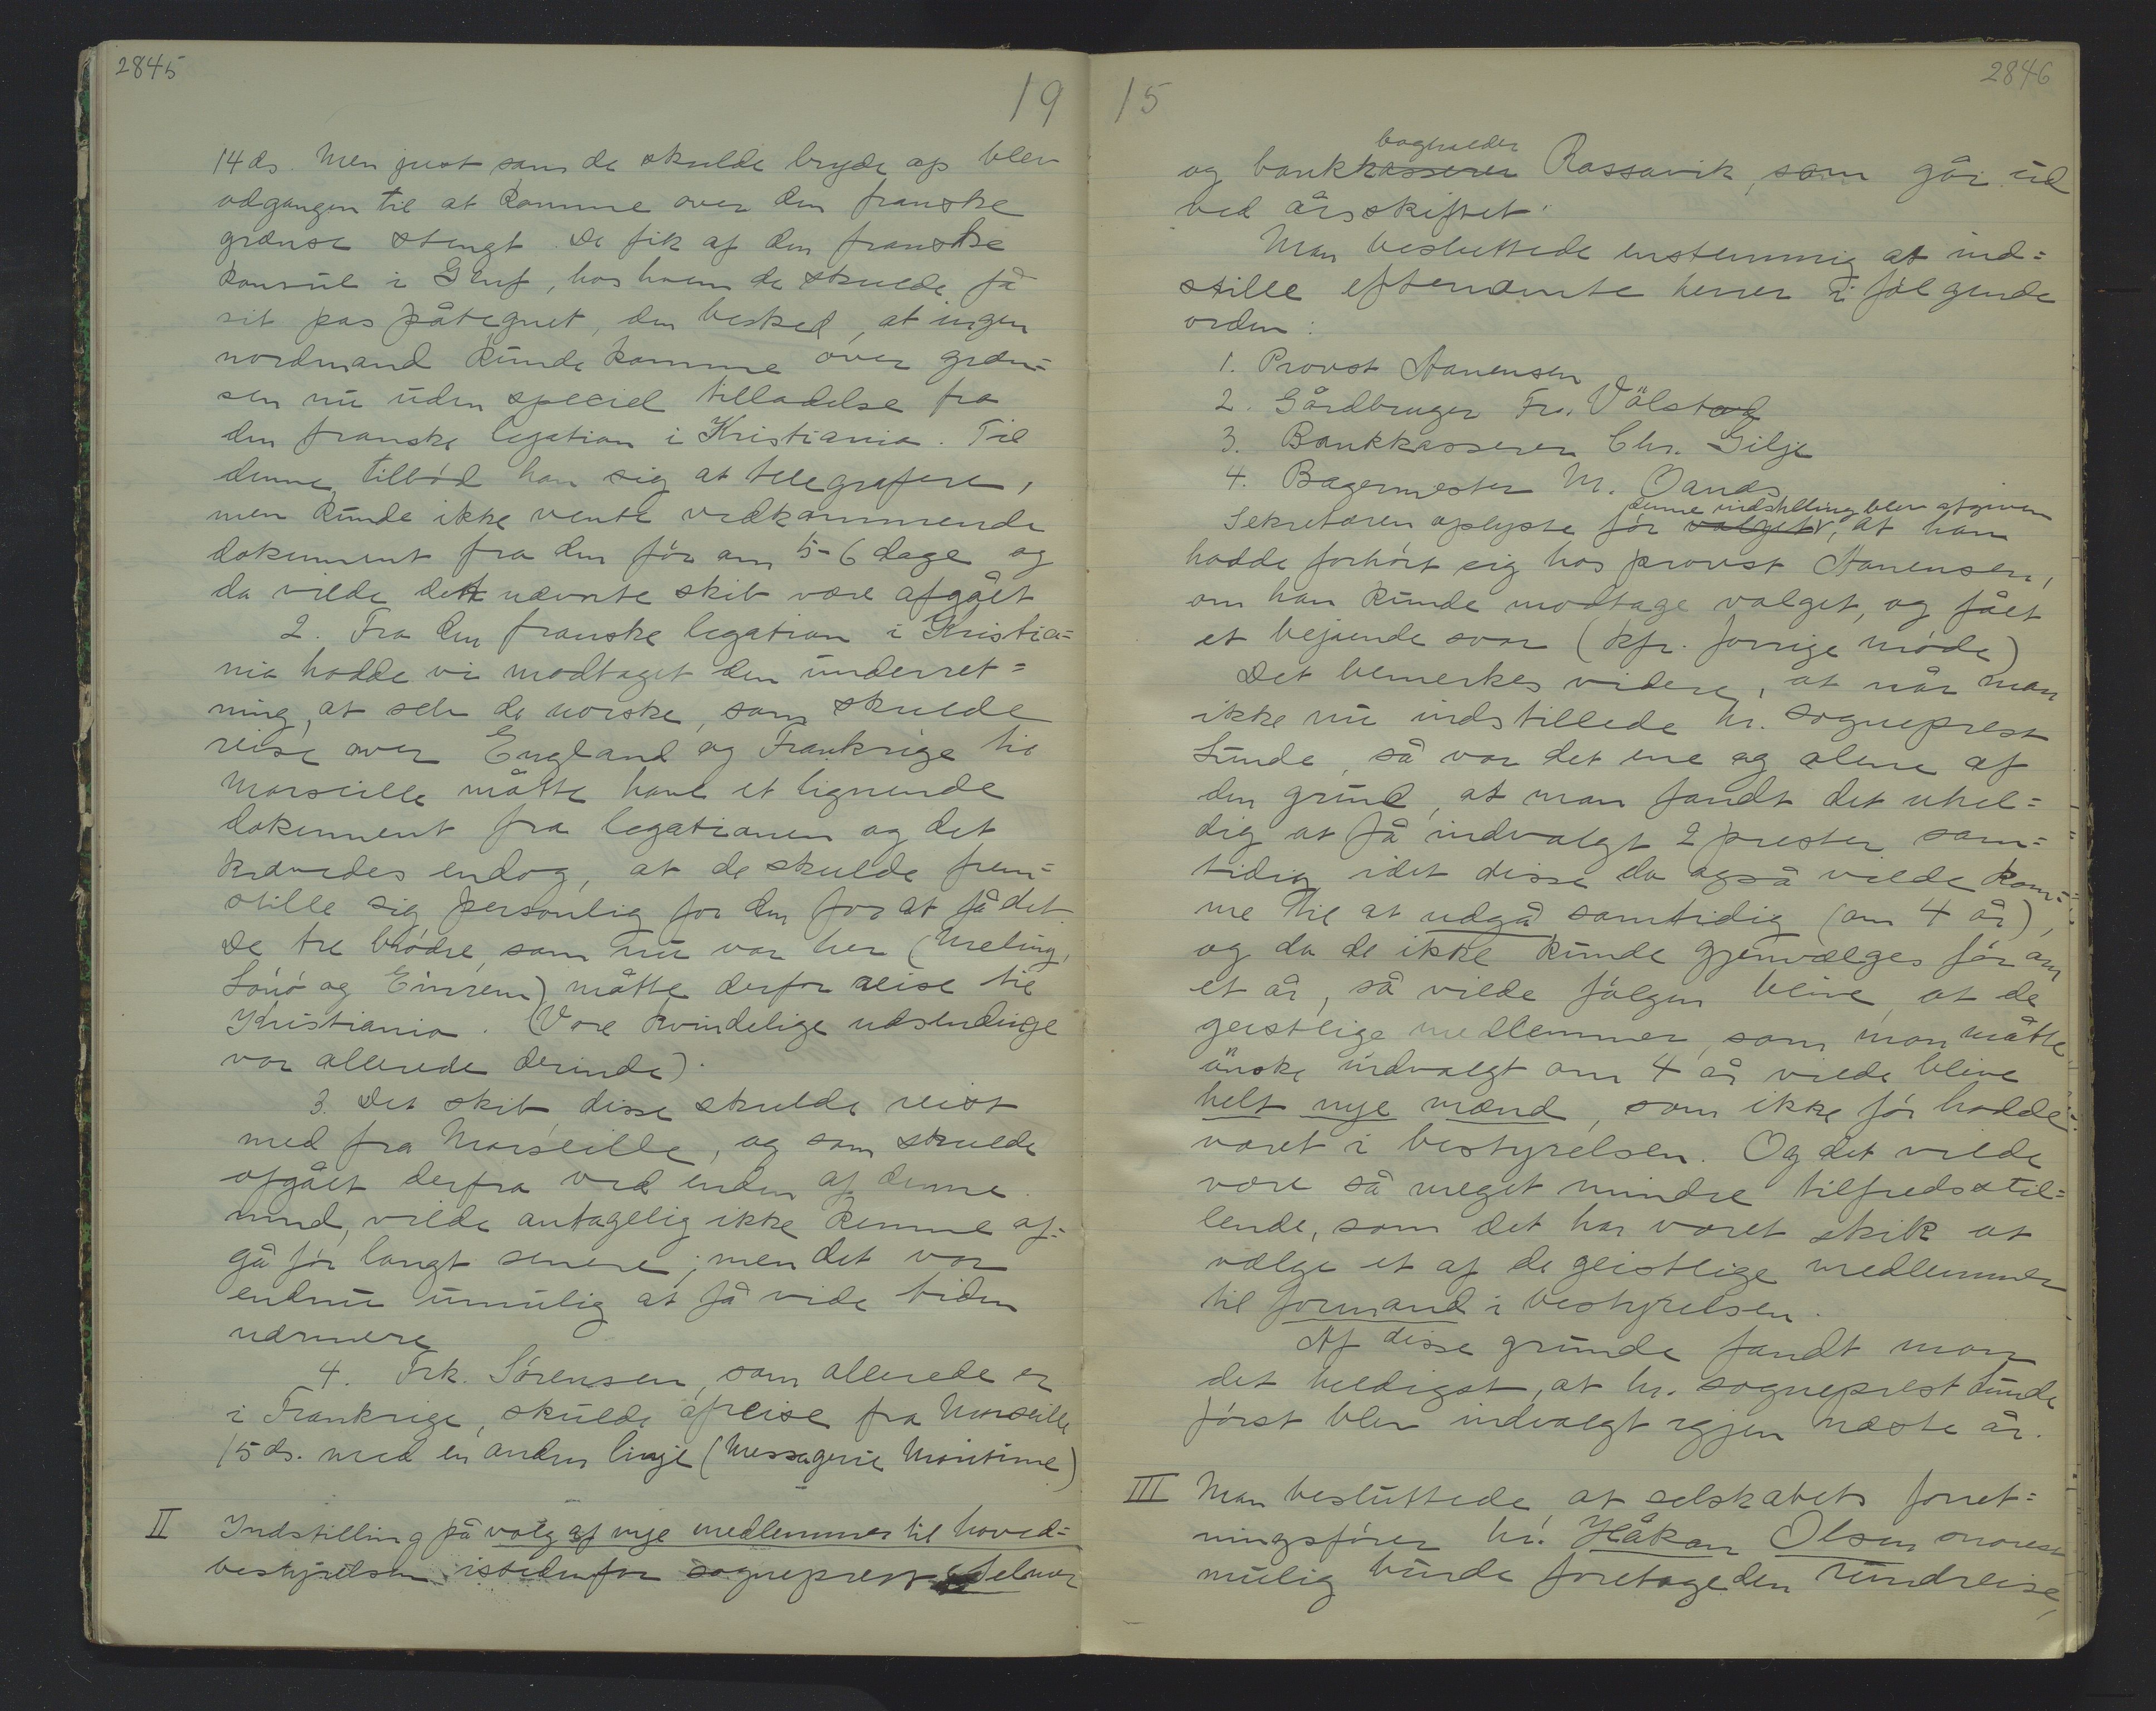 2845
19
14 ds. Men just som de skulde bryde op blev
adgangen til at komme over den franske
grænse stengt. De fik af den franske
konsul i Genf, hos hvem de skulde få
sit pas påtegnet, den besked, at ingen
nordmand kunde komme over græn=
sen nu uden speciel tilladelse fra
den franske legation i Kristiania. Til
denne tilbød han sig at telegrafere,
men kunde ikke vente vedkommende
dokument fra den før om 5-6 dage og
da vilde det nævnte skib være afgået
2. Fra den franske legation i Kristia=
nia hadde vi modtaget den underret=
ning, at selv de norske, som skulde
reise over England og Frankrige til
Marseille måtte have et lignende
dokument fra legationen og det
krævedes endog, at de skulde frem=
stille sig personlig for den for at få det.
De tre brødre, som nu var her (Meling,
Lønø og Einrem) måtte derfor reise til
Kristiania. (Vore kvindelige udsendinge
var allerede derinde).
3. Det skib disse skulde reist
med fra Marseille, og som skulde
afgået derfra ved enden af denne
mnd, vilde antagelig ikke komme af=
gå før langt senere; men det var
endnu umulig at få vide tiden
nærmere
4. Frk. Sørensen, som allerede er
i Frankrige, skulde afreise fra Marseille
15 ds. med en anden linje (Messagerie Maritime)
II Indstilling på valg af nye medlemmer til hoved=
bestyrelsen istedenfor sogneprest Selmer
15
2846
bogholder
og bankkasserer Rossavik, som går ud
ved årsskiftet.
Man besluttede enstemmig at ind=
stille eftenævnte herrer i følgende
orden:
1. Provst Aanensen
2. Gårdbruger Fr. Vålstad
3. Bankkasserer Chr. Gilje
4. Bagermester M. Oands
denne indstilling blev afgiven
Sekretæren oplyste før valget, at han
hadde forhørt sig hos provst Aanensen,
om han kunde modtage valget, og fået
et bejaende svar (kfr. forrige møde)
Det bemerkes videre, at når man
ikke nu indstillede hr. sogneprest
Lunde, så var det ene og alene af
den grund, at man fandt det uhel=
dig at få indvalgt 2 prester sam=
tidig idet disse da også vilde kom=
me til at udgå samtidig (om 4 år),
og da de ikke kunde gjenvælges før om
et år, så vilde følgen blive at de
geistlige medlemmer, som man måtte
ønske indvalgt om 4 år vilde blive
helt nye mænd, som ikke før hadde
været i bestyrelsen. Og det vilde
være så meget mindre tilfredsstil=
lende, som det har været skik at
vælge et af de geistlige medlemmer
til formand i bestyrelsen.
Af disse grunde fandt man
det heldigst, at hr. sogneprest Lunde
først blev indvalgt igjen næste år.
III Man besluttede, at selskabets forret=
ningsfører hr. Håkon Olsen snarest
mulig burde foretage den rundreise,